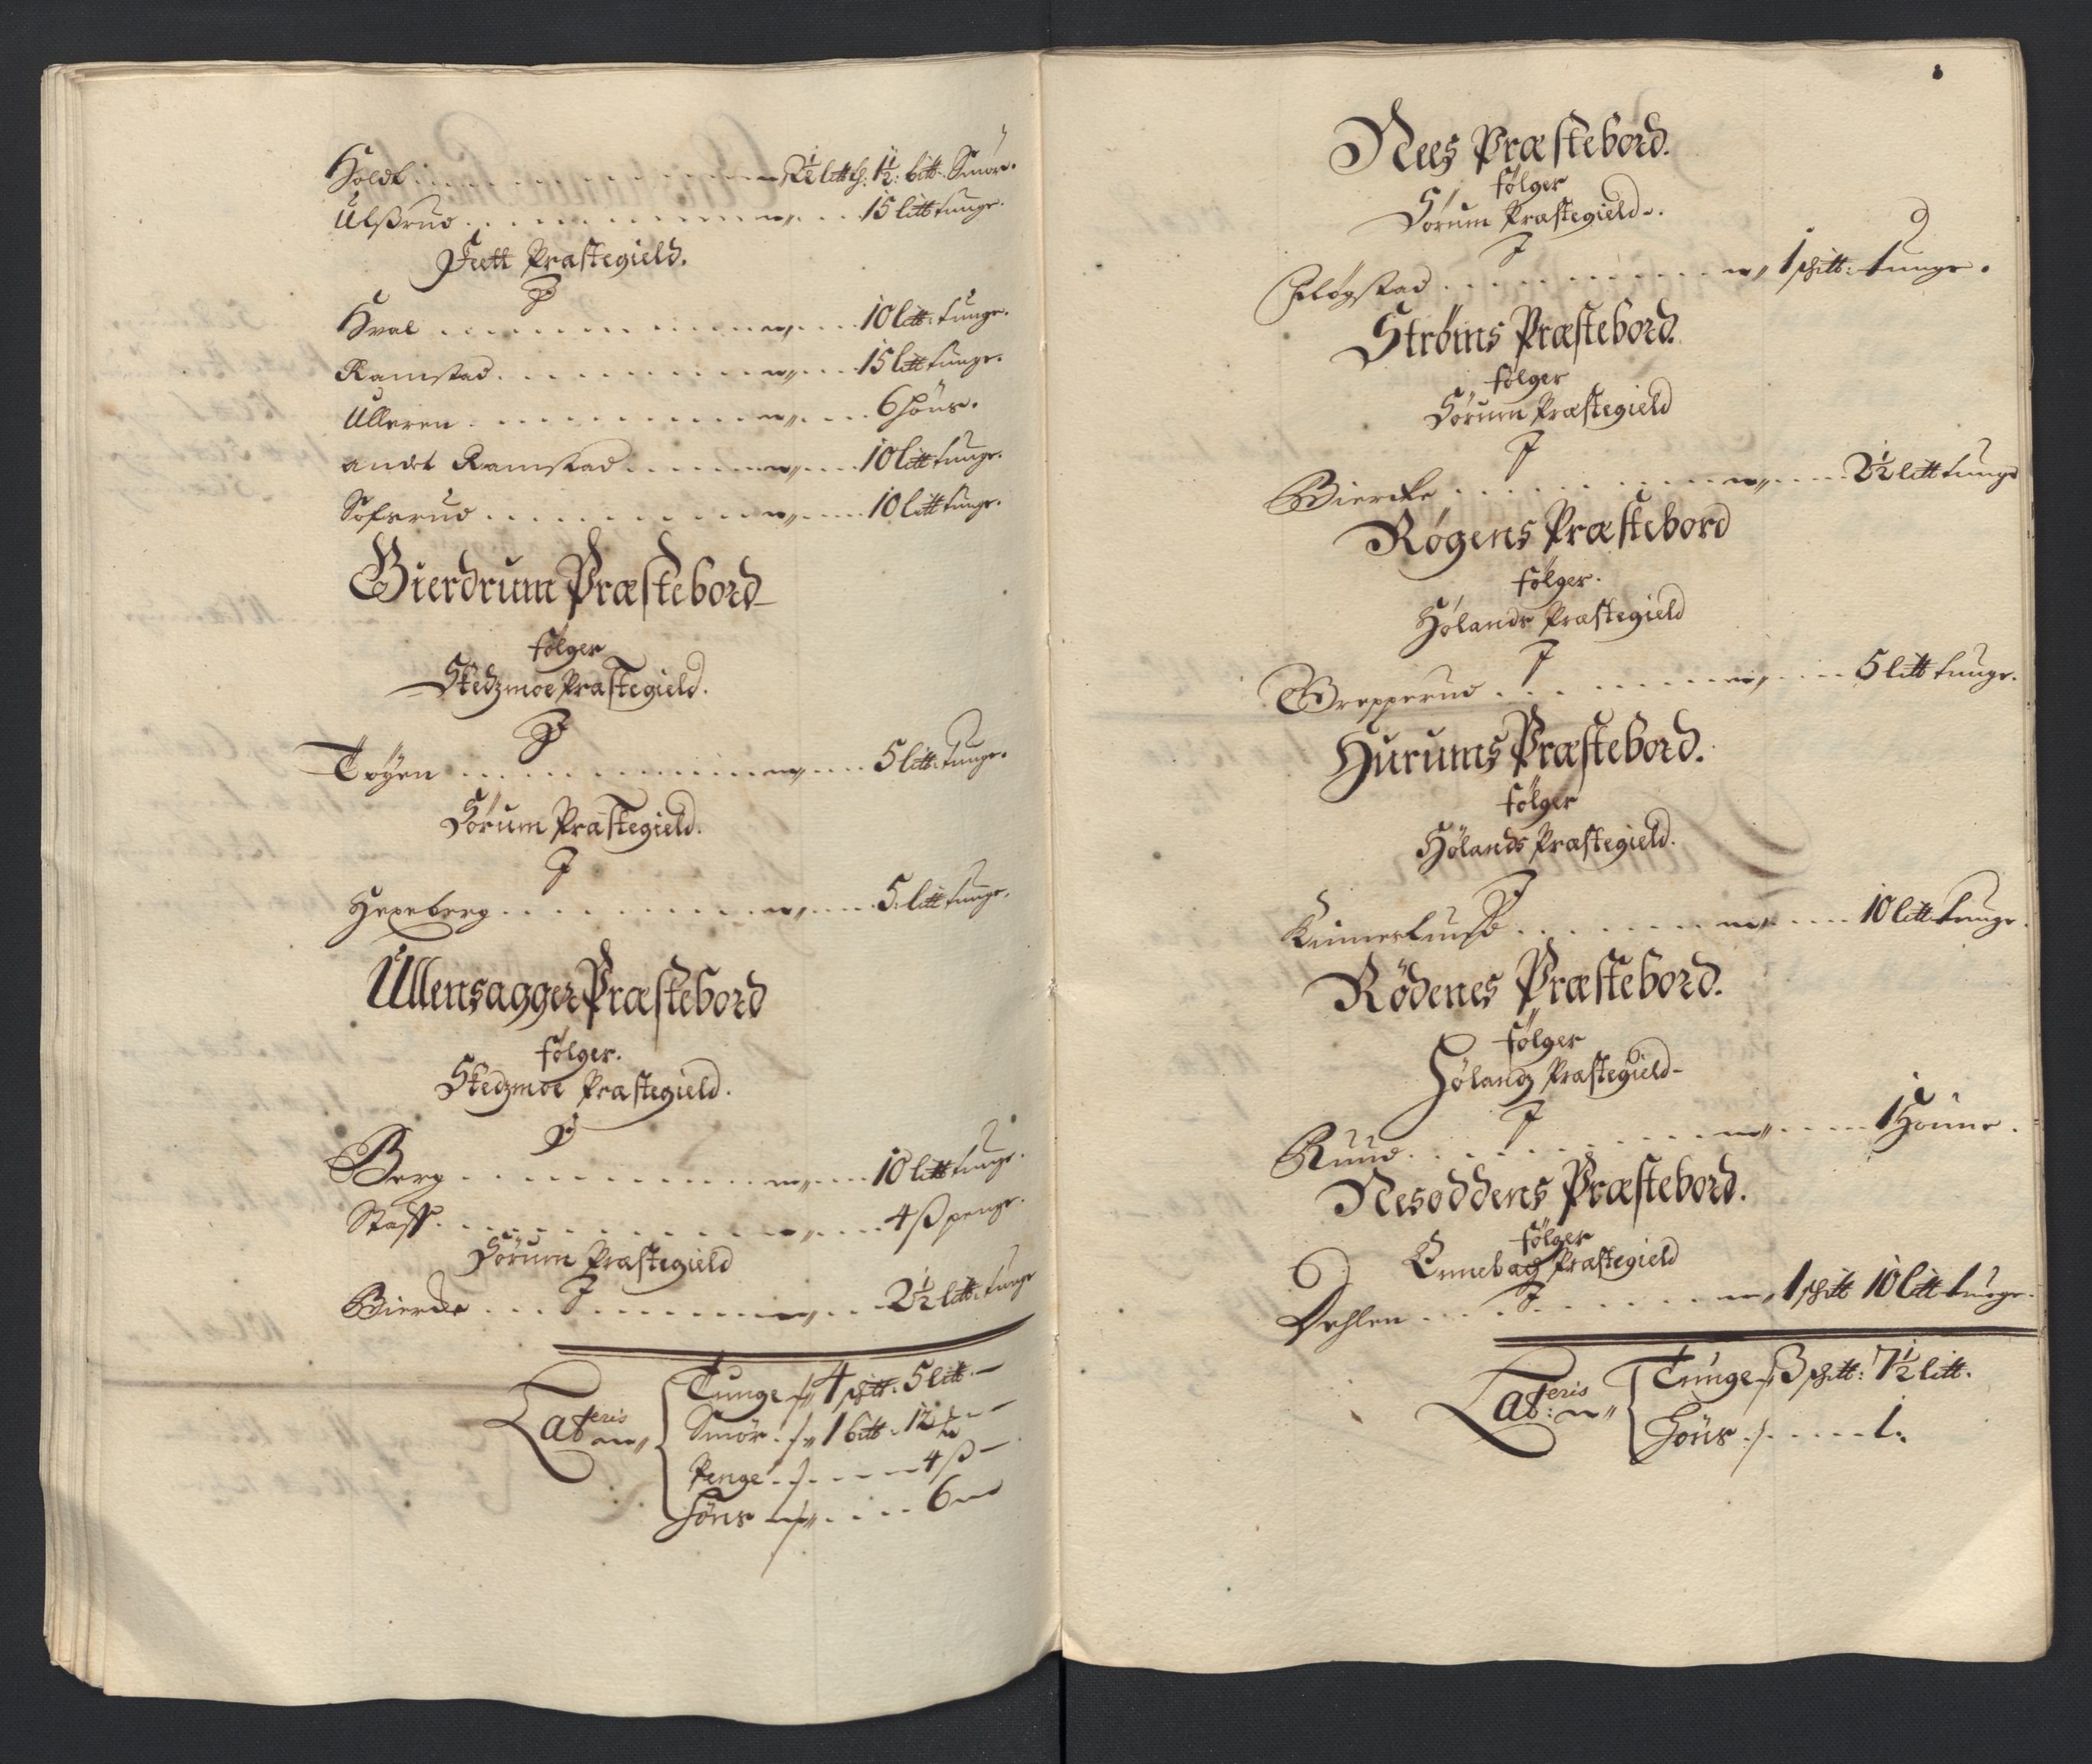 Holdt . . . 2½ litt t: 1½: bitt: Smør.
Ulsrud . . . 15 litt tunge.
Feett Præstegield.
Hval . . . 10 litt: tunge.
Ramstad . . . 15 litt tunge.
Ulleren . . . 6 Høns.
andet Ramstad . . . 10 litt tunge.
Sofsrud . . . 10 litt tunge.
Gierdrum Præstebord
følger
Skedzmoe Præstegield.
J
Tøyen . . . 5 litt: tunge.
Sørum Præstegield.
J
Hexeberg . . . 5 litt tunge.
Ullensagger Præstebord
følger.
Skedzmoe Præstegield.
J
Berg . . . 10 litt tunge.
Staff . . . 4 ß penge.
Sørum Præstegield
J
Biercke . . . 2½ litt: tunge
Lateris
Tunge 4 schtt: 5 litt. –
Smør 1 bitt: 12
Penge . . . 4 ß –
Høns . . . 6
Nees Præstebord.
følger
Sørum Præstegield.
J
Fløgstad . . . 1 schtt: tunge.
Strøms Præstebord.
følger
Sørum Præstegield
J
Biercke . . . 2½ litt tunge
Røgens Præstebord
følger.
Hølands Præstegield
J
Grepperud . . . 5 litt tunge.
Hurums Præstebord.
følger
Hølands Præstegield.
J
Kinnerlund . . . 10 litt tunge.
Rødenes Præstebord.
følger
Hølandz Præstegield
J
Ruud . . . 1 Hønne.
Nesoddens Præstebord.
følger
Ennebach Præstegield
J
Dehlen . . . 1 schtt 10 litt tunge.
Lateris
Tunge 3 schtt: 7½ litt.
Høns . . . 1.